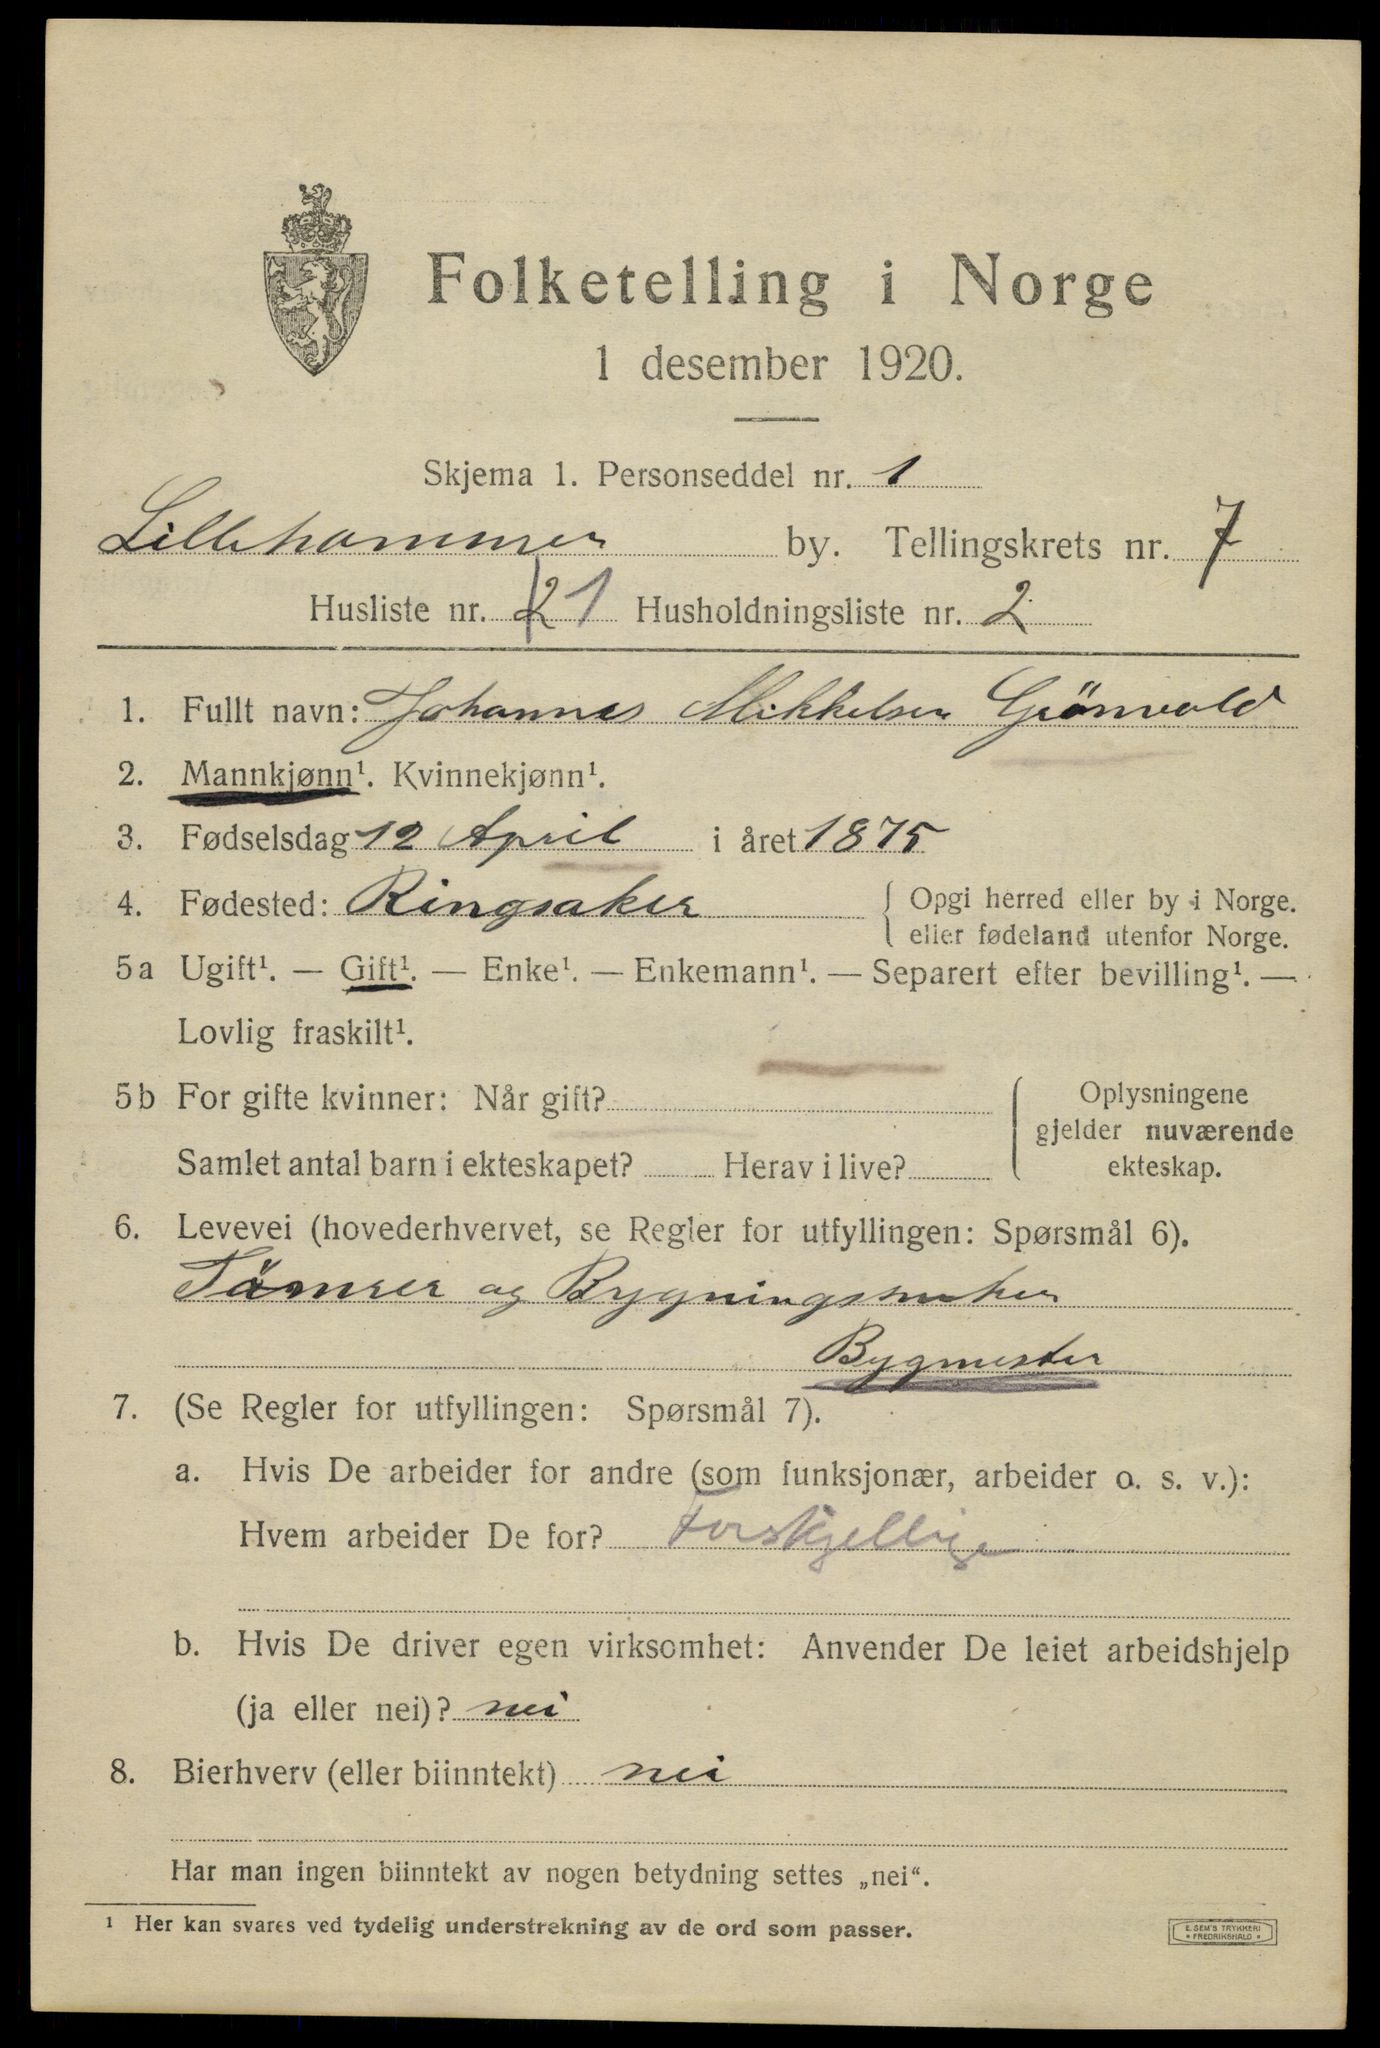 Folketelling i Norge
1 desember 1920.
Skjema 1. Personseddel nr. 1
Lillehammer by. Tellingskrets nr. 7
Husliste nr. 21 Husholdningsliste nr. 2
1. Fullt navn: Johannes Mikkelsen Grönvold
2. Mannkjønn¹. Kvinnekjønn¹.
3. Fødselsdag 12 April i året 1875
4. Fødested: Ringsaker { Opgi herred eller by i Norge.
eller fødeland utenfor Norge.
5a Ugift¹. — Gift¹. — Enke¹. — Enkemann¹. — Separert efter bevilling¹. —
Lovlig fraskilt¹.
5b For gifte kvinner: Når gift? Oplysningene
gjelder nuværende
Samlet antal barn i ekteskapet? Herav i live? ekteskap.
6. Levevei (hovederhvervet, se Regler for utfyllingen: Spørsmål 6).
Tömrer og Bygningssnker
Bygmester
7. (Se Regler for utfyllingen: Spørsmål 7).
a. Hvis De arbeider for andre (som funksjonær, arbeider o. s. v.):
Hvem arbeider De for? Forskjellige
b. Hvis De driver egen virksomhet: Anvender De leiet arbeidshjelp
(ja eller nei)? nei
8. Bierhverv (eller biinntekt) nei
Har man ingen biinntekt av nogen betydning settes „nei“.
¹ Her kan svares ved tydelig understrekning av de ord som passer.
E. SEM'S TRYKKERI
FREDRIKSHALD